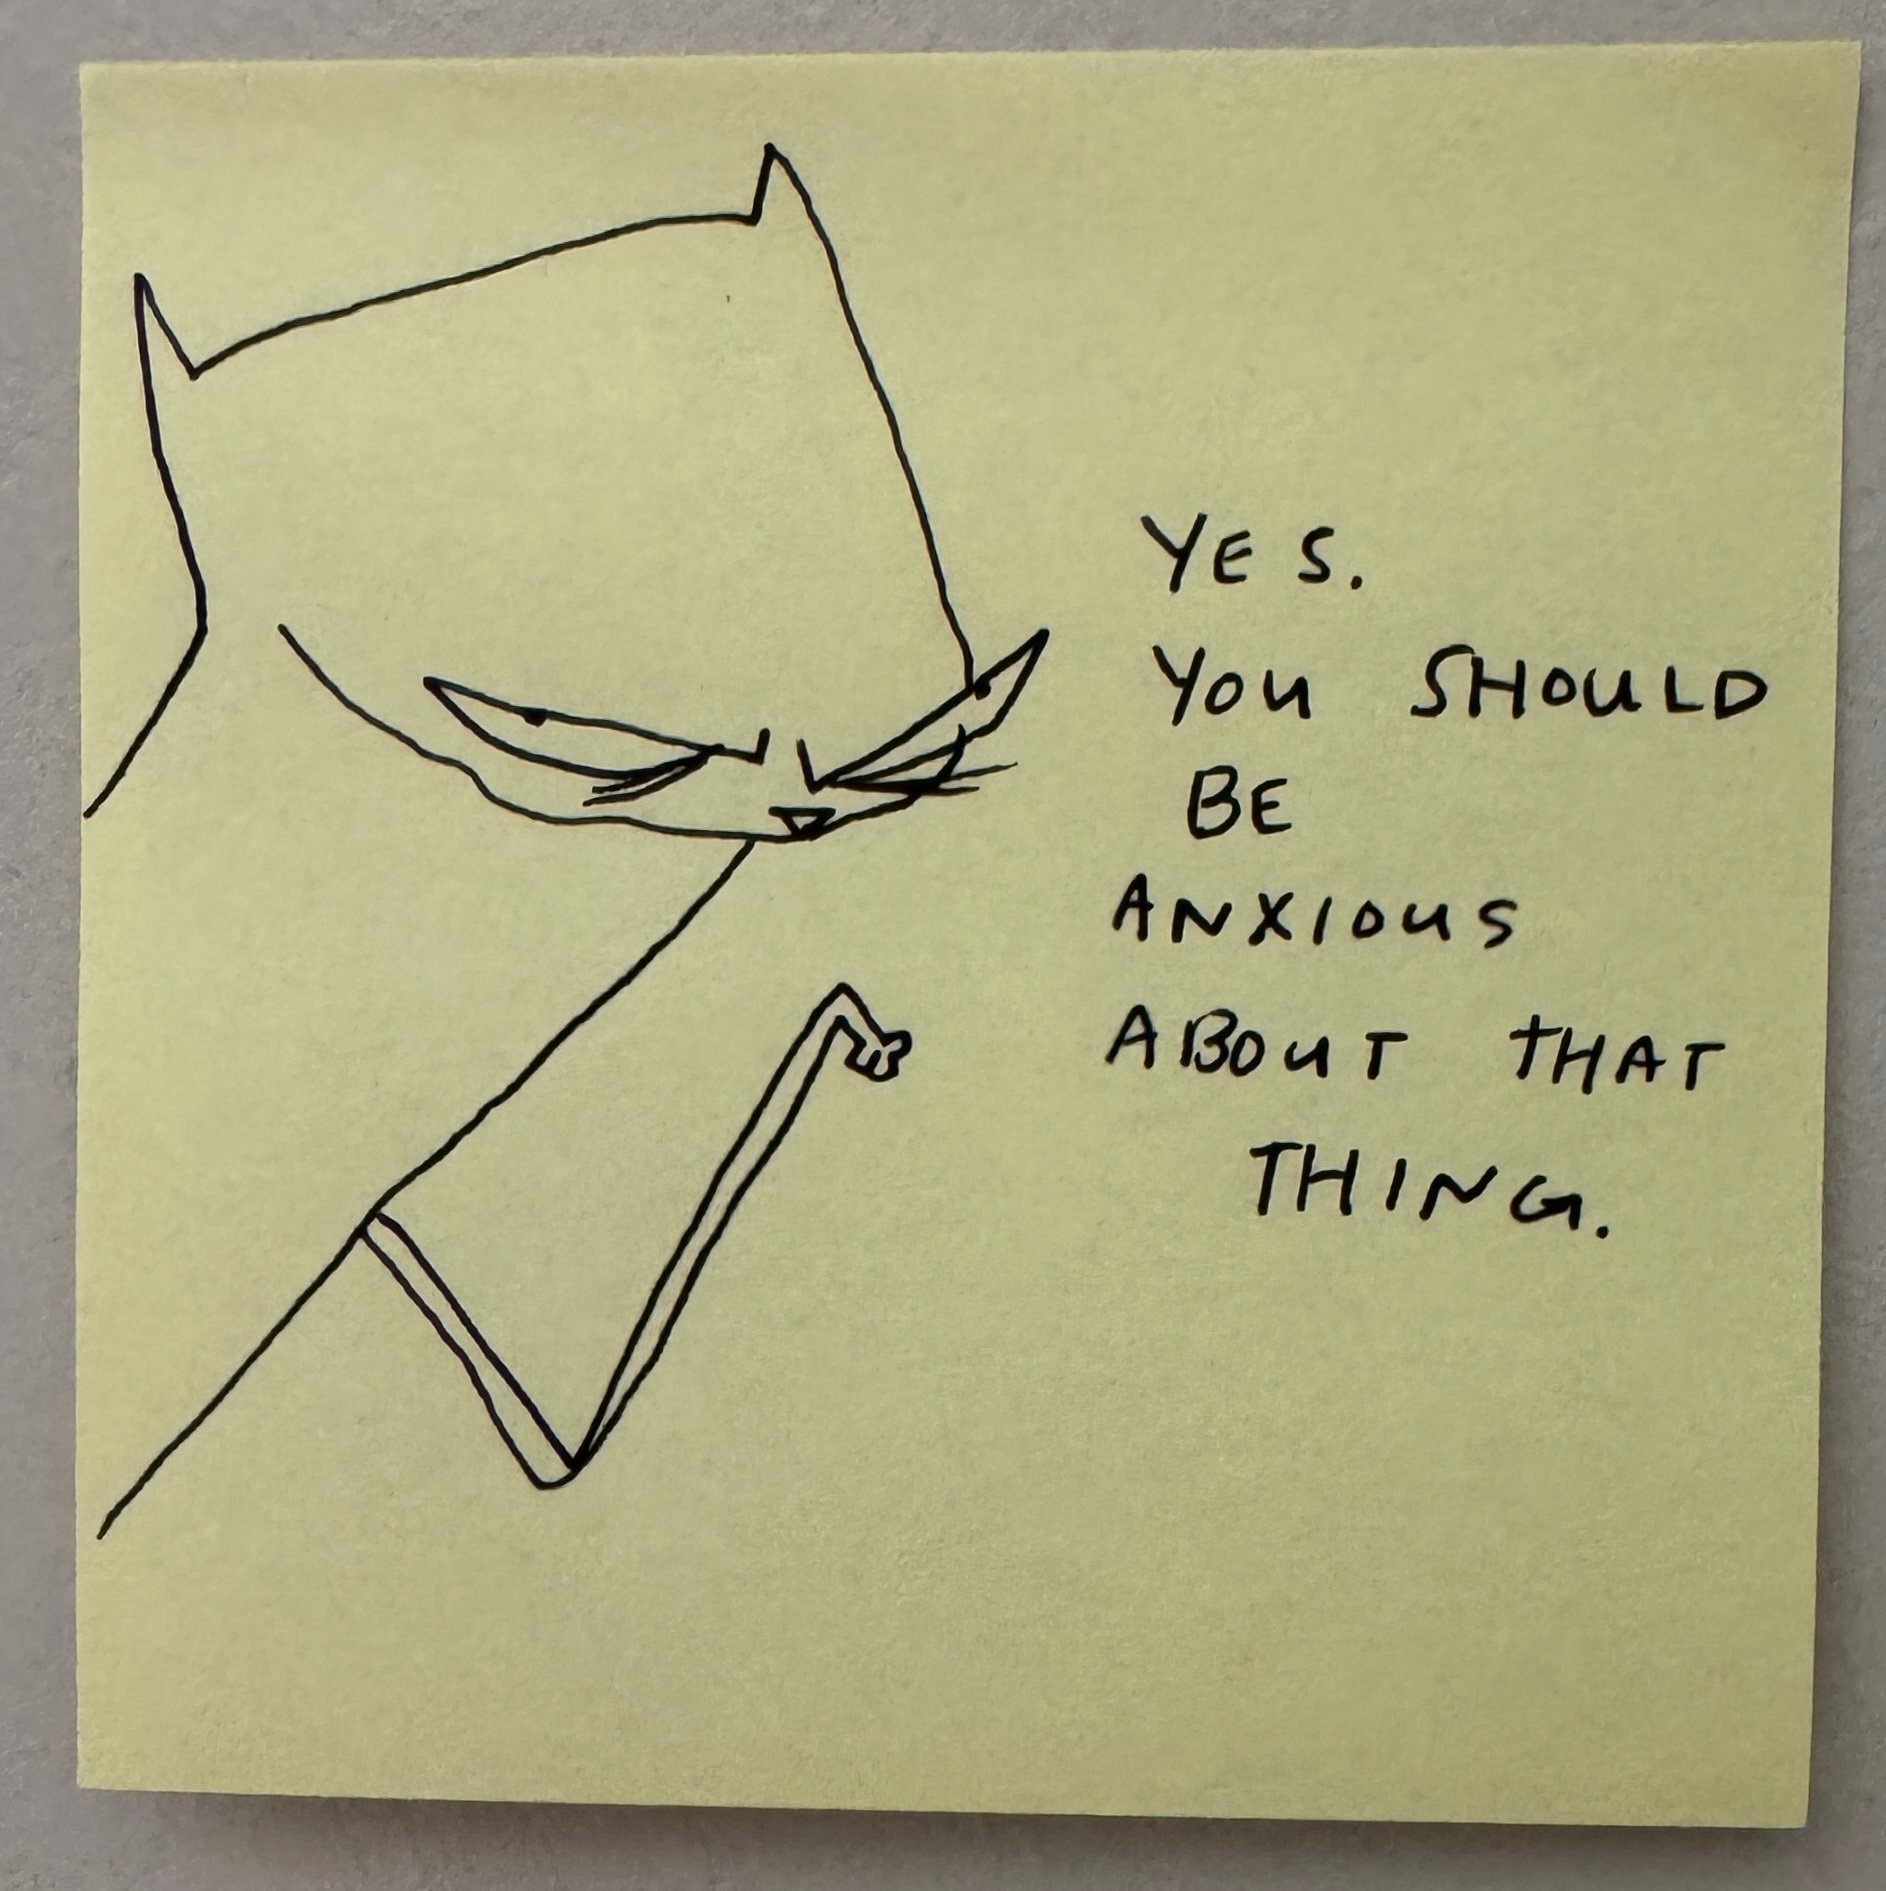 YES.
YOU SHOULD
BE
ANXIOUS
ABOUT THAT
THING.